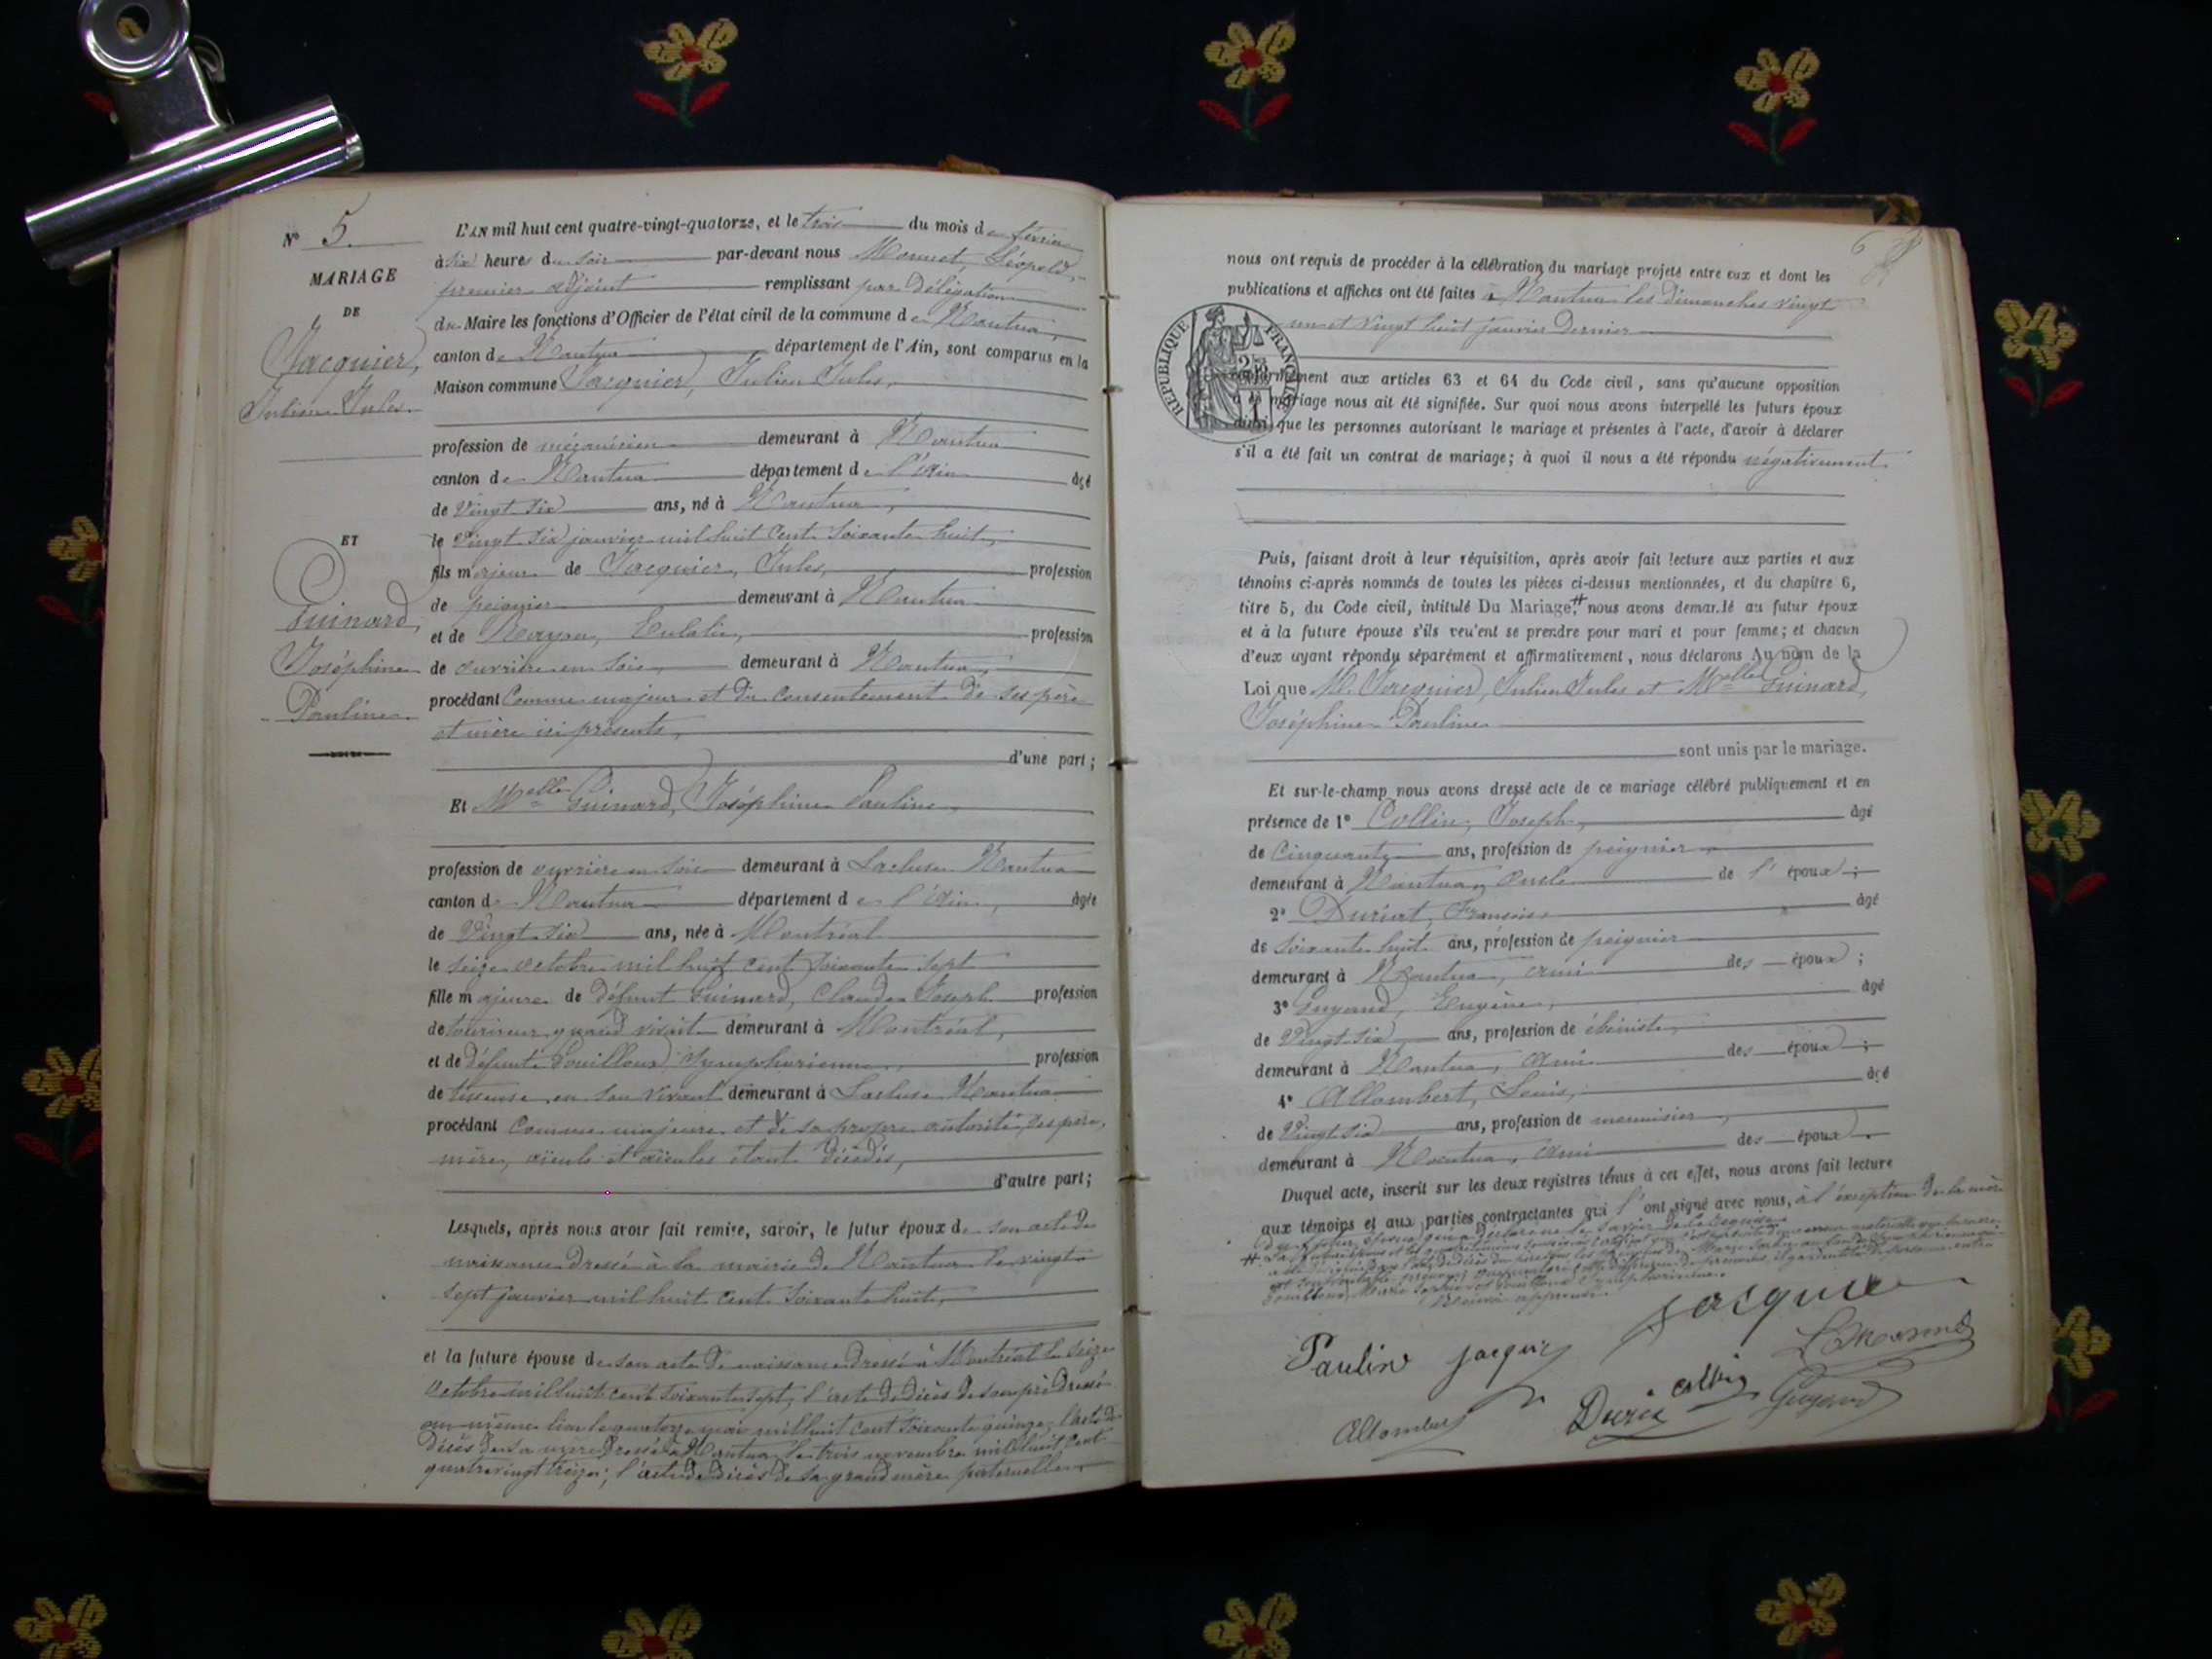 N° 5.
MARIAGE
DE
Jacquier,
Julien Jules.
ET
Guinard,
Joséphine
Pauline.
L'AN mil huit cent quatre-vingt-quatorze, et le trois du mois de février
à six heures du soir par-devant nous Monnet, Léopold,
premier adjoint remplissant par délégation
du Maire les fonctions d'Officier de l'état civil de la commune de Nantua,
canton de Nantua département de l'Ain, sont comparus en la
Maison commune Jacquier, Julien Jules,
profession de mécanicien demeurant à Nantua
canton de Nantua département de l'Ain âgé
de vingt six ans, né à Nantua,
le vingt six janvier mil huit cent soixante huit,
fils majeur de Jacquier, Jules, profession
de peignier demeurant à Nantua
et de Eulalie, profession
de ouvrière en soie, demeurant à Nantua,
procédant comme majeur et du consentement de ses père
et mère ici présents,
d'une part;
Et Melle Guinard, Joséphine Pauline,
profession de ouvrière en soie demeurant à Lacluse Nantua
canton de Nantua département de l'Ain, âgée
de vingt six ans, née à Montréal
le seize octobre mil huit cent soixante sept
fille majeure de défunt Guinard, Claude Joseph profession
de quand vivait demeurant à Montréal,
et de défunte Gouilloux, Symphorienne, profession
de tisseuse en son vivant demeurant à Lacluse Nantua
procédant comme majeure et de sa propre autorité, ses père,
mère, aïeuls et aïeules étant décédés,
d'autre part;
Lesquels, après nous avoir fait remise, savoir, le futur époux de son acte de
naissance dressé à la mairie de Nantua le vingt
sept janvier mil huit cent soixante huit,
et la future épouse de son acte de naissance dressé à Montréal le seize
octobre mil huit cent soixante sept, l'acte de décès de son père dressé
au même lieu le quatorze mai mil huit cent soixante quinze, l'acte de
décès de sa mère dressé à Nantua le trois novembre mil huit cent
quatre vingt treize; l'acte de décès de sa grand mère paternelle,
6
nous ont requis de procéder à la célébration du mariage projeté entre eux et dont les
publications et affiches ont été faites à Nantua les dimanches vingt
un et vingt huit janvier dernier
REPUBLIQUE FRANÇAISE
conformément aux articles 63 et 64 du Code civil, sans qu'aucune opposition
à ce mariage nous ait été signifiée. Sur quoi nous avons interpellé les futurs époux
ainsi que les personnes autorisant le mariage et présentes à l'acte, d'avoir à déclarer
s'il a été fait un contrat de mariage; à quoi il nous a été répondu négativement.
Puis, faisant droit à leur réquisition, après avoir fait lecture aux parties et aux
témoins ci-après nommés de toutes les pièces ci-dessus mentionnées, et du chapitre 6,
titre 5, du Code civil, intitulé Du Mariage, # nous avons demandé au futur époux
et à la future épouse s'ils veulent se prendre pour mari et pour femme; et chacun
d'eux ayant répondu séparément et affirmativement, nous déclarons Au nom de la
Loi que M. Jacquier, Julien Jules et Melle Guinard,
Joséphine Pauline
sont unis par le mariage.
Et sur-le-champ nous avons dressé acte de ce mariage célébré publiquement et en
présence de 1° Collin, Joseph, âgé
de cinquante ans, profession de peignier
demeurant à Nantua, oncle de l'époux;
2° Duriat, François âgé
de soixante huit ans, profession de peignier
demeurant à Nantua, ami des époux;
3° Guyand, Eugène, âgé
de vingt six ans, profession de ébéniste,
demeurant à Nantua, ami des époux;
4° Allombert, Louis, âgé
de vingt six ans, profession de menuisier,
demeurant à Nantua, ami des époux.
Duquel acte, inscrit sur les deux registres tenus à cet effet, nous avons fait lecture
aux témoins et aux parties contractantes qui l'ont signé avec nous, à l'exception de la mère
Pauline Jacquier
Allombert
Collin
Guyand